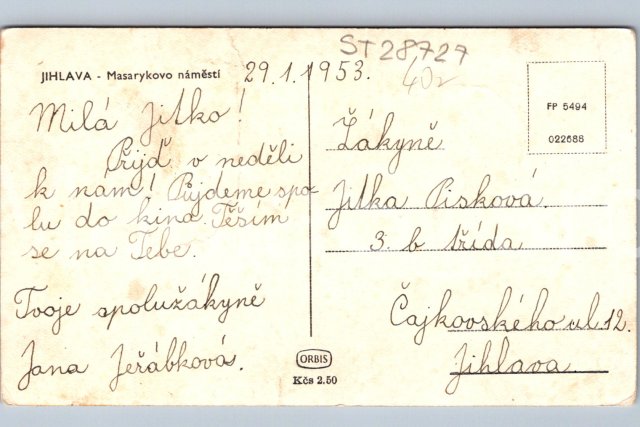 ST 28727
JIHLAVA - Masarykovo náměstí
29.1.1953.
40,-
Milá Jitko!
Přijď v neděli
k nam! Půjdeme spo-
lu do kina. Těším
se na Tebe.
Tvoje spolužákyně
Jana Jeřábková.
ORBIS
Kčs 2.50
FP 5494
022688
Žákyně
Jitka Pisková.
3. b třída
Čajkovského ul. 12.
Jihlava.